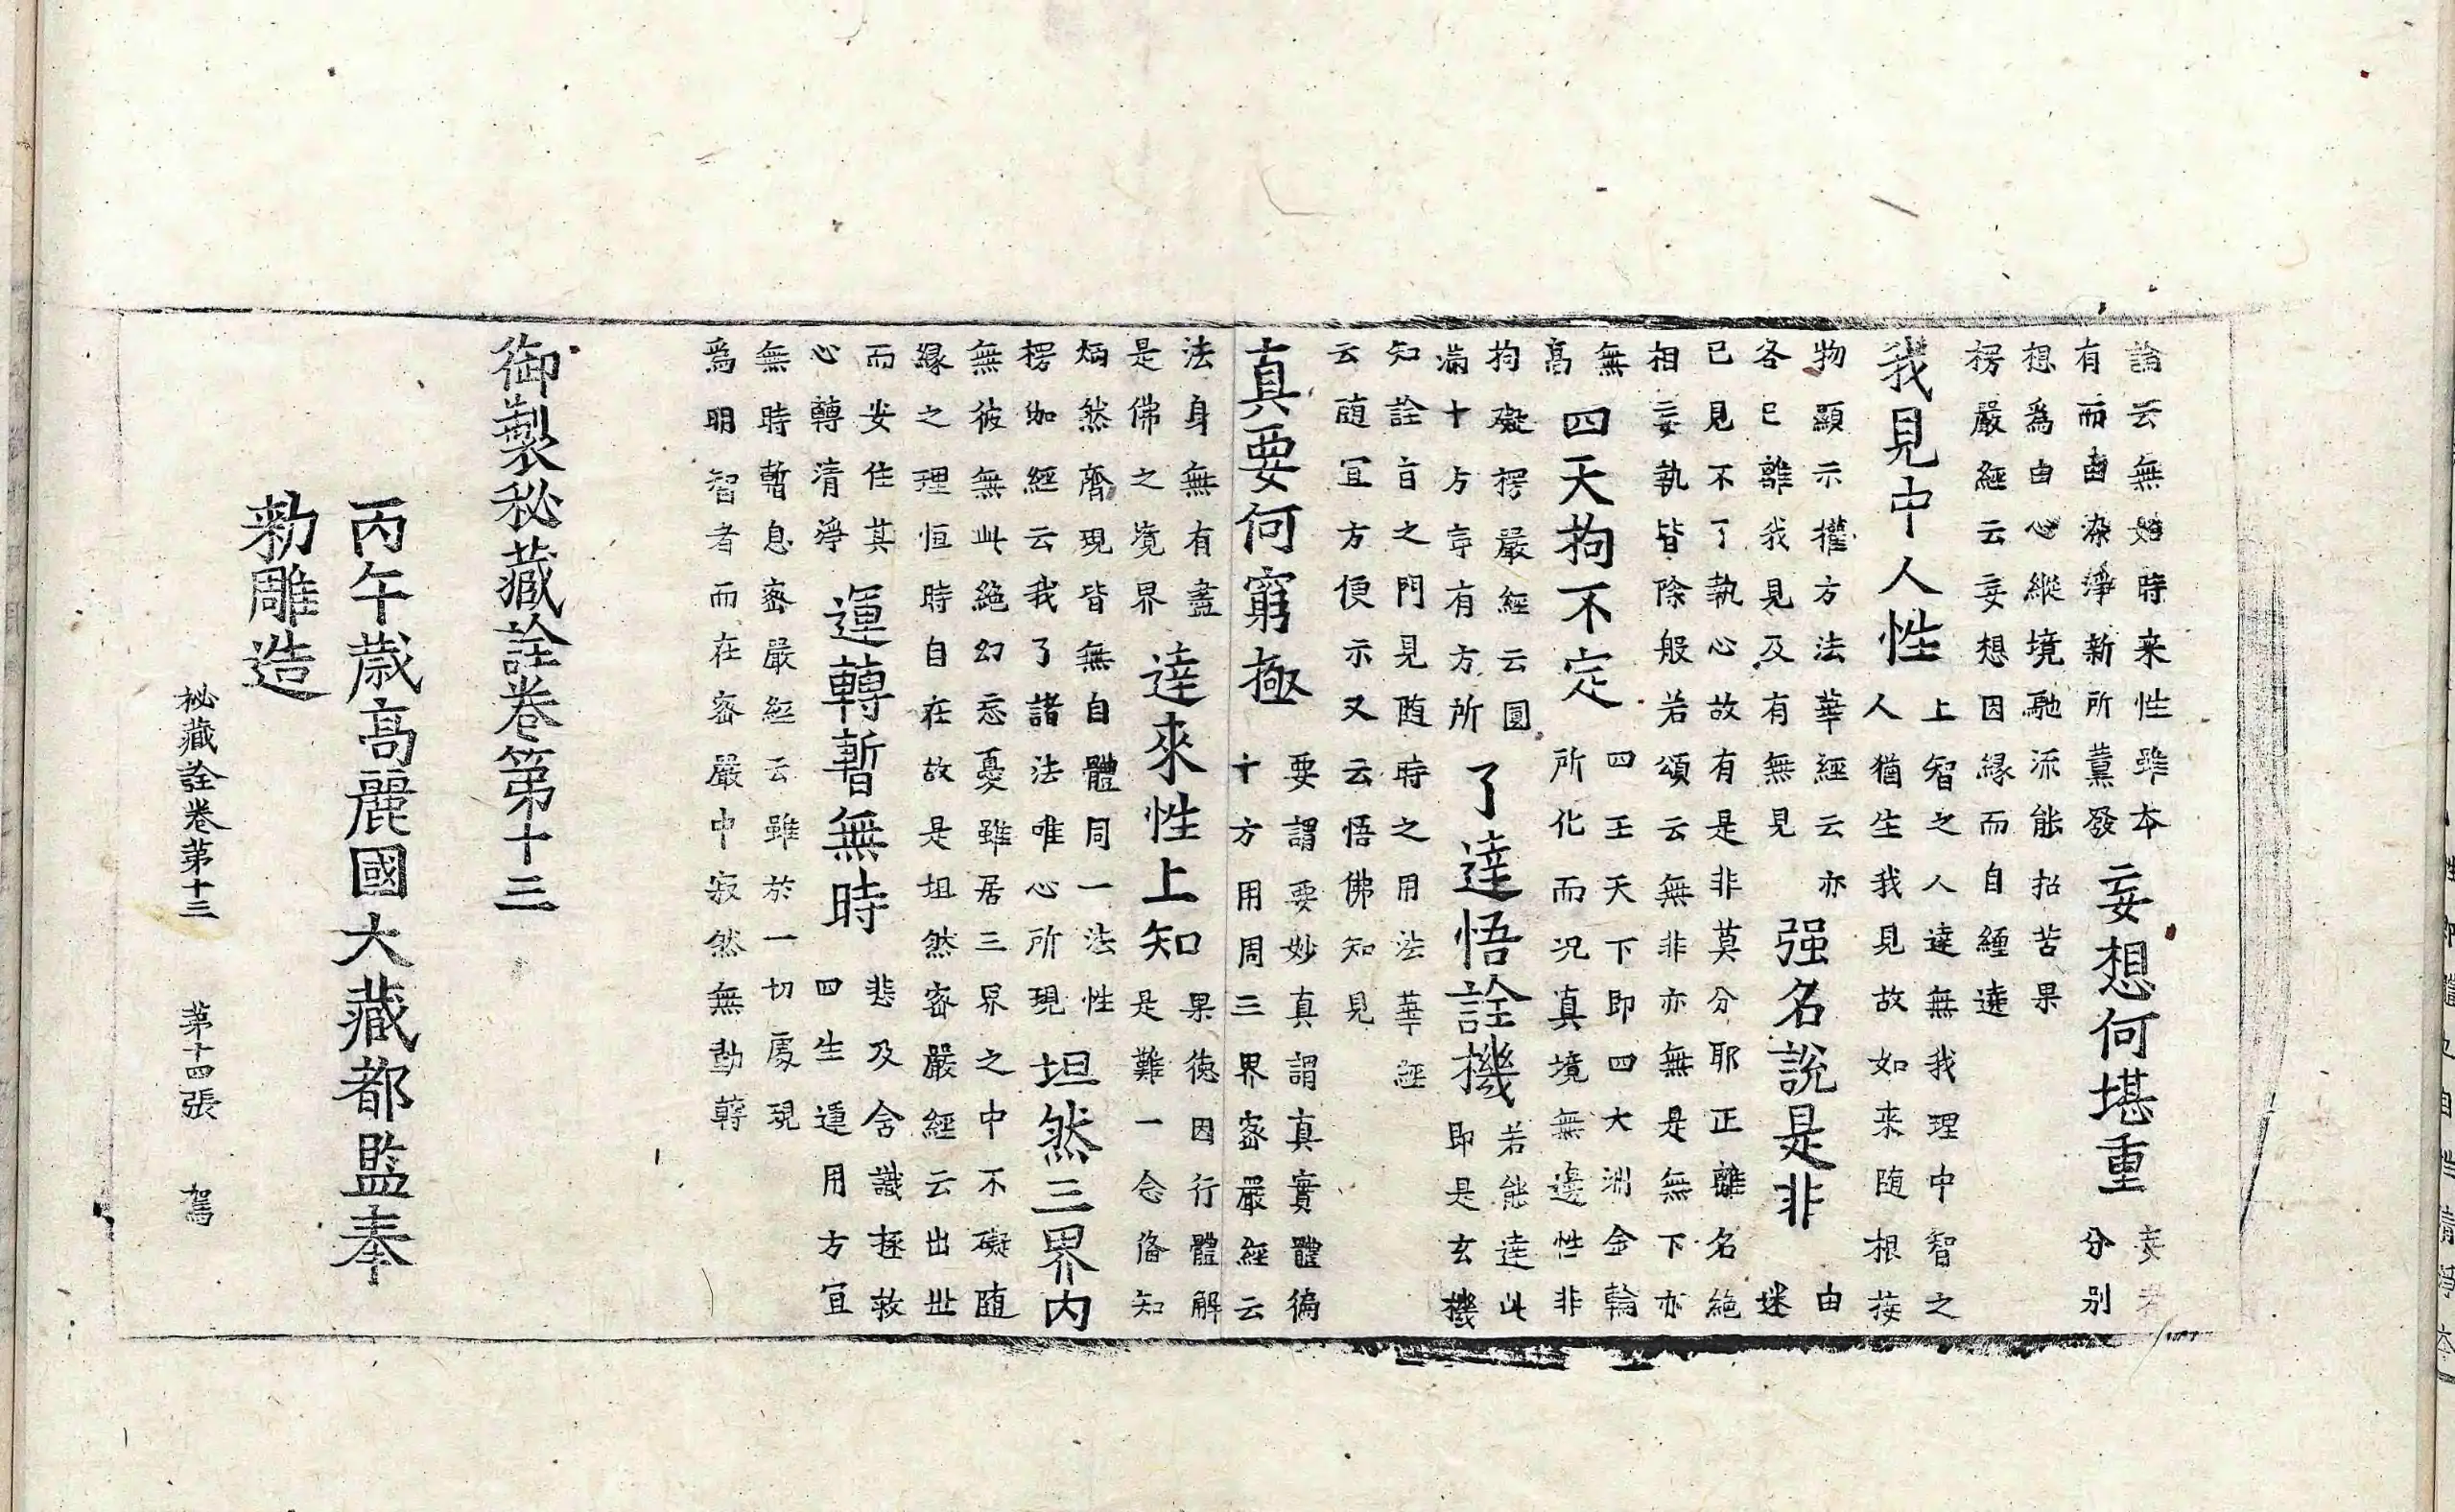 論云無始時来性雖本
有而由染淨新所薰發
妄想何堪重
妄者
分別
想爲由心縱境馳流能招苦果
楞嚴經云妄想因緣而自纏遶
我見中人性
上智之人達無我理中智之
人猶生我見故如来随根接
物顯示權方法華經云亦
各已離我見及有無見
强名說是非
由
迷
已見不了執心故有是非莫分耶正離名絶
相妄執皆除般若頌云無非亦無是無下亦
無
高
四天拘不定
四王天下即四大洲金輪
所化而况真境無邊性非
拘礙楞嚴經云圓
滿十方寧有方所
了達悟詮機
若能達此
即是玄機
知詮旨之門見随時之用法華經
云随宜方便示又云悟佛知見
真要何窮極
要謂要妙真謂真實體徧
十方用周三界密嚴經云
法身無有盡
是佛之境界
達來性上知
果徳因行體解
是難一念俻知
炳然齊現皆無自體同一法性
楞伽經云我了諸法唯心所現
坦然三界内
無彼無此絶幻忘憂雖居三界之中不礙随
緣之理恒時自在故是坦然密嚴經云出此
而安住其
心轉清淨
運轉暫無時
悲及含識拯救
四生運用方宜
無時暫息密嚴經云雖於一切處現
爲明智者而在密嚴中寂然無動轉
御製秘藏詮卷第十三
丙午歳高麗國大藏都監奉
勑雕造
秘藏詮卷第十三 第十四張 駕